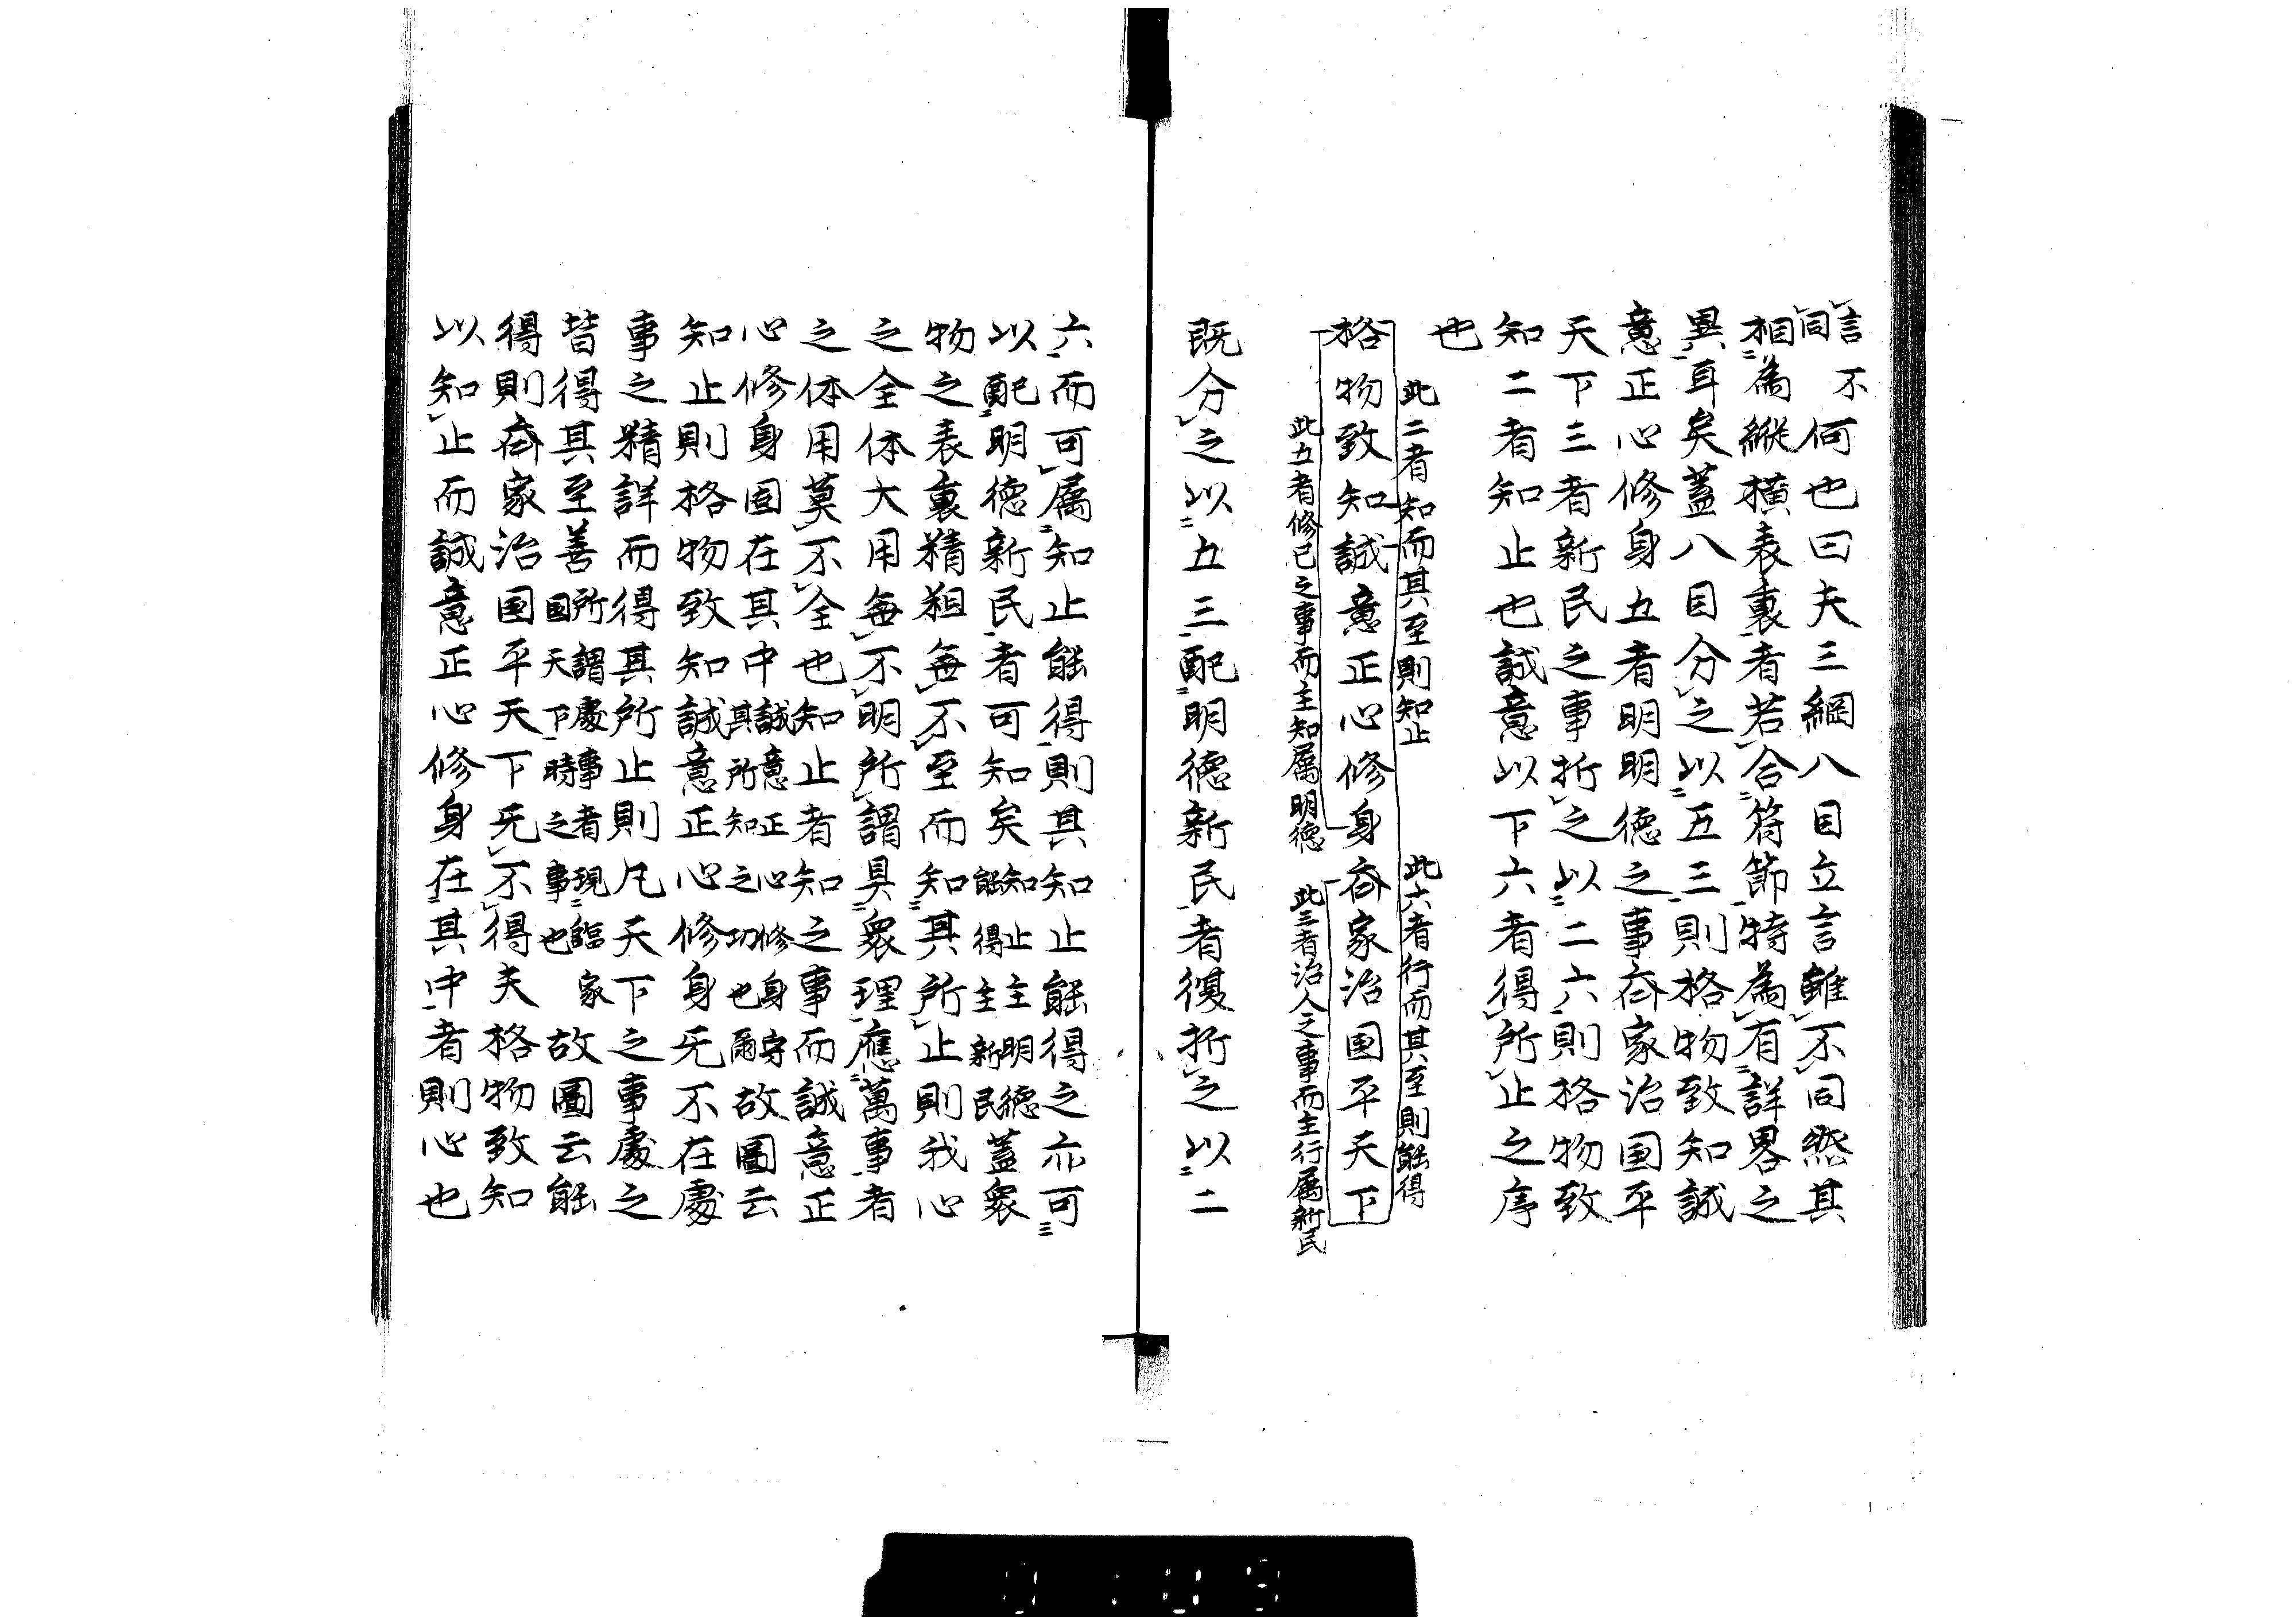 言不
同何也曰夫三綱八目立言雖不同然其
相為縦横表裏者若合符節特為有詳畧之
異耳矣蓋八目分之以五三則格物致知誠
意正心修身五者明明德之事斉家治国平
天下三者新民之事折之以二六則格物致
知二者知止也誠意以下六者得所止之序
也
此二者知而其至則知止
此六者行而其至則能得
格物致知誠意正心修身斉家治国平天下
此五者修己之事而主知属明德
此三者治人之事而主行属新民
既分之以五三配明德新民者復折之以二
六而可属知止能得則其知止能得之亦可
以配明德新民者可知矣知止主明德能得主新民蓋衆
物之表裏精粗每不至而知其所止則我心
之全体大用每不明所謂具衆理應萬事者
之体用莫不全也知止者知之事而誠意正
心修身固在其中誠意正心修身守其所知之功也爾故圖云
知止則格物致知誠意正心修身旡不在處
事之精詳而得其所止則凡天下之事處之
皆得其至善所謂處事者現臨家国天下時之事也故圖云能
得則斉家治国平天下旡不得夫格物致知
以知止而誠意正心修身在其中者則心也